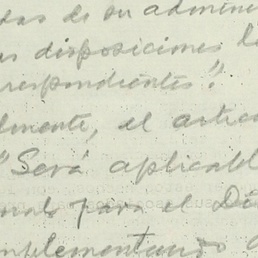 das de su admini
as disposiciones le
respondientes".
lmente, el artic
"Será aplicabl
para el Di
mplementando